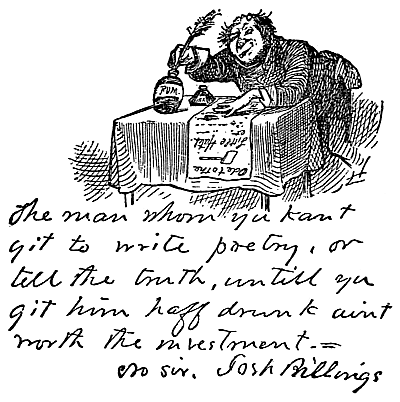 RUM.
Ode to the
little
The man whom yu kant
git to write poetry, or
tell the truth, untill yu
git him haff drunk aint
worth the investment.=
no sir. Josh Billings